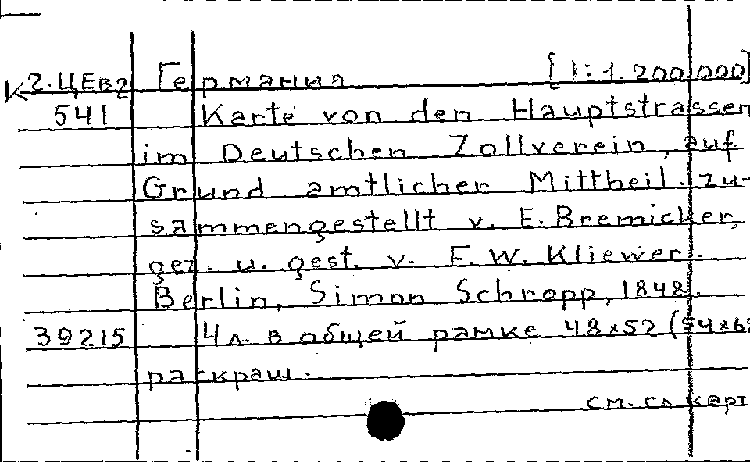 К 2.ЦЕв2 Германия [1:1.200.000]
541 Karte von den Hauptstrassen
im Deutschen Zollverein, auf
Grund amtlicher Mittheil. zu-
sammengestellt v. E. Bremicker,
gez. u. gest. v. F. W. Kliewer.
Berlin, Simon Schropp, 1848.
39215 4 л. в общей рамке 48x52 (54x6
раскраш.
см. сл карт